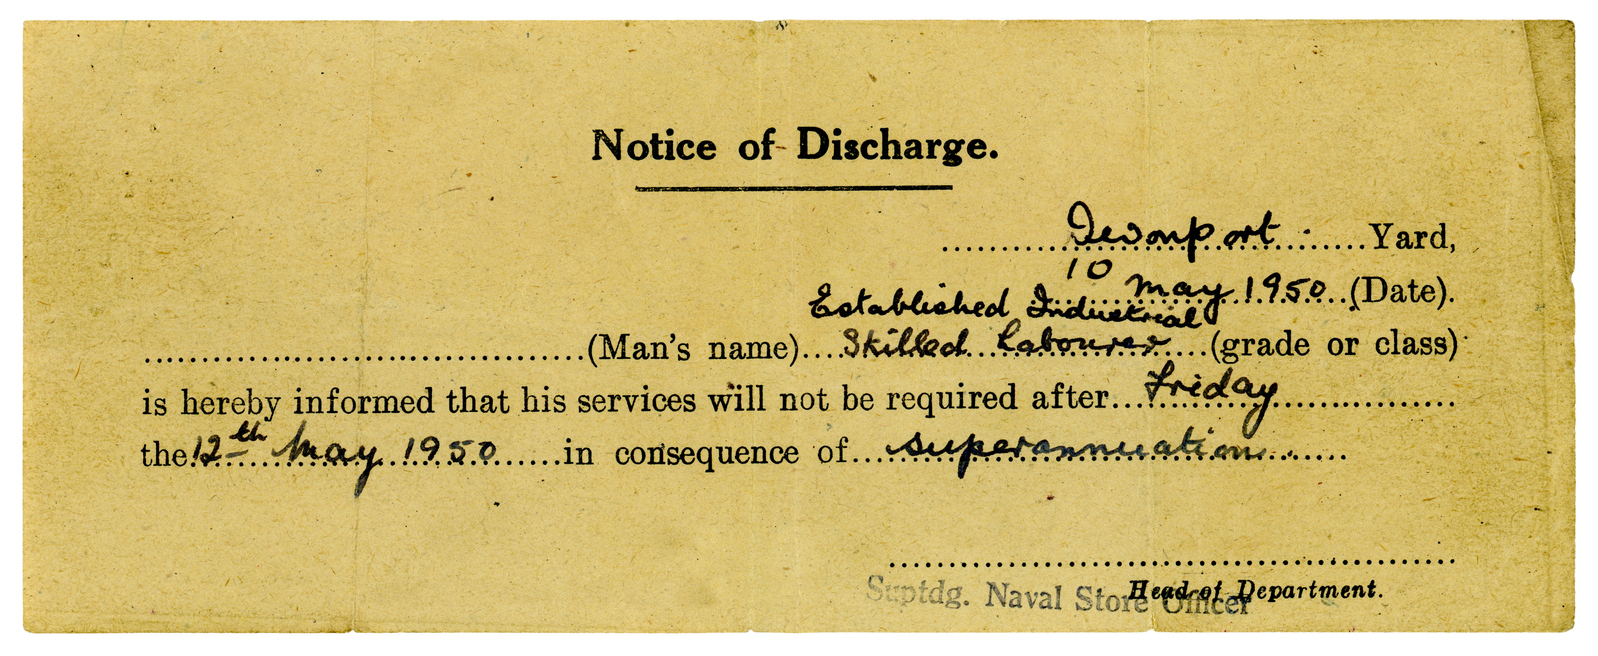 Notice of Discharge.
Devonport Yard,
10 May 1950 (Date).
Established Industrial
(Man's name) Skilled Labourer (grade or class)
is hereby informed that his services will not be required after Friday
the 12th May 1950 in consequence of superannuation
Head of Department.
Suptdg. Naval Store Officer